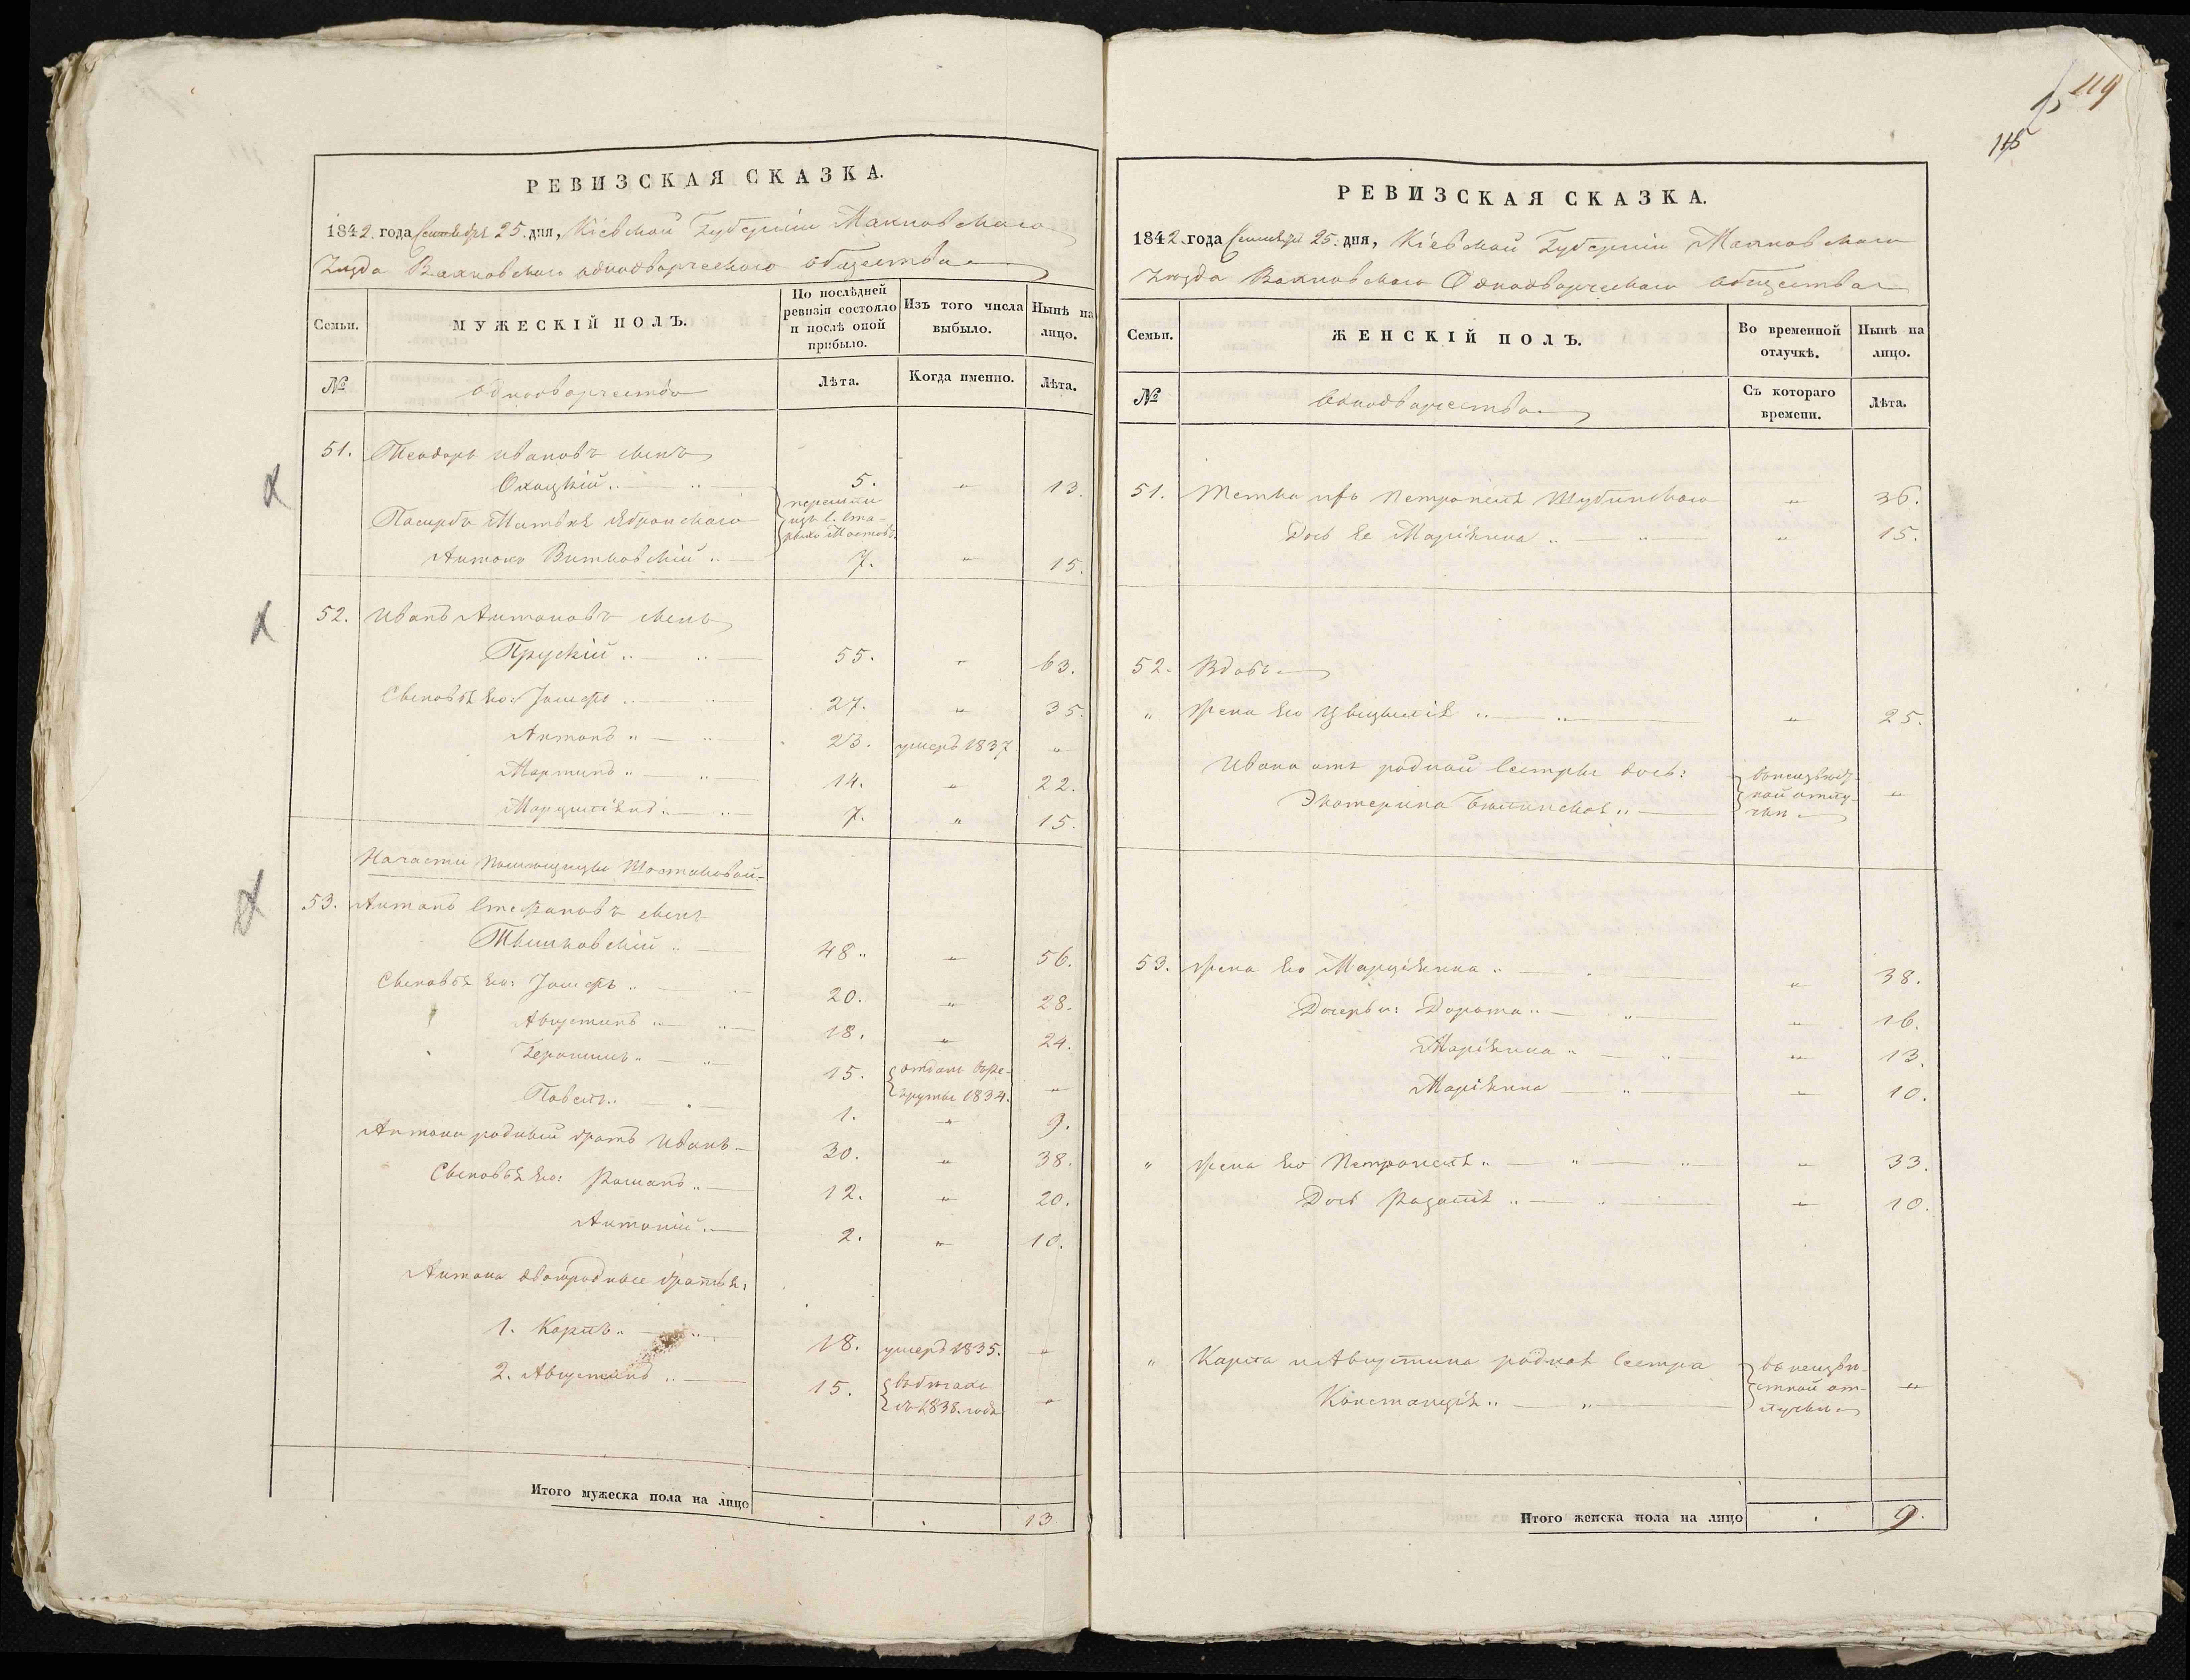 РЕВИЗСКАЯ СКАЗКА.
1842. года Сентября 25. дня, Кіевской Губерніи Махновскаго
Уезда Вахновскаго однодворческаго общества
Семьи.
МУЖЕСКІЙ ПОЛЪ.
По послѣдней ревизіи состояло и послѣ оной прибыло.
Изъ того числа выбыло.
Нынѣ на лицо.
№
однодворчество
Лѣта.
Когда именно.
Лѣта.
51. Теодоръ Ивановъ сынъ
Охоцкій .. 5. " 13.
Пасирбъ Матвѣя
перешли изъ с. Ста-
рыхъ Мостовъ
Антонъ Витковскій .. 7. " 15.
52. Иванъ Антоновъ сынъ
Прускій .. 55. " 63.
Сыновья его: Іосифъ .. 27. " 35.
Антонъ .. 23. умеръ 1837 "
Мартинъ .. 14. " 22.
Марцеліянъ .. 7. " 15.
На части помѣщицы Шостаковой
53. Антонъ Стефановъ сынъ
Тышковскій .. 48. " 56.
Сыновья его: Іосифъ .. 20. " 28.
Августинъ .. 18. " 24.
Геронимъ .. 15. отданъ въ ре-
круты 1834. "
Павелъ .. 1. " 9.
Антона родный братъ Иванъ 30. " 38.
Сыновья его: Романъ .. 12. " 20.
Антоній .. 2. " 10.
Антона двоюродные братья:
1. Карлъ .. 18. умеръ 1835. "
2. Августинъ .. 15. въ бѣгахъ
съ 1838. года "
Итого мужеска пола на лицо 13.
119
115
РЕВИЗСКАЯ СКАЗКА.
1842. года Сентября 25. дня, Кіевской Губерніи Махновскаго
Уезда Вахновскаго Однодворческаго общества
Семьи.
ЖЕНСКІЙ ПОЛЪ.
Во временной отлучкѣ.
Нынѣ на лицо.
№
Однодворчество
Съ котораго времени.
Лѣта.
51. Тетка его Петронеля " 36.
Дочь ее Маріянна .. " 15.
52. Вдовъ
" Жена его Цицилія .. " 25.
Ивана отъ родной сестры дочь:
Экатерина .. въ неизвѣст-
ной отлу-
чки "
53. Жена его Марціянна .. " 38.
Дочери: Дорота .. " 16.
Маріянна .. " 13.
Маріянна " 10.
" Жена его Петронеля .. " 33.
Дочь Розалія .. " 10.
" Карла и Августина родная сестра
Констанція .. въ неизвѣ-
стной от-
лучки "
Итого женска пола на лицо 9.